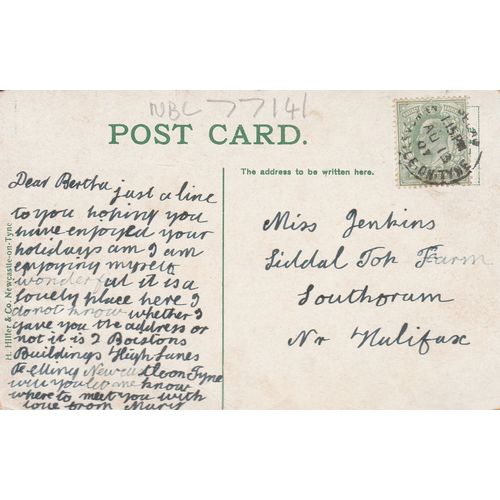 NBC 77141
POST CARD.
The address to be written here.
H. Hiller & Co. Newcastle-on-Tyne
Dear Bertha just a line
to you hoping you
have enjoyed your
holidays am I am
enjoying myself
wonderful it is a
lovely place here I
do not know whether I
gave you the address or
not it is 2 Boistons
Buildings High Lanes
Felling Newcastle on Tyne
will you let me know
where to meet you with
love from Mary
Miss Jenkins
Siddal Top Farm
Southoram
Nr Halifax
AU 13
07